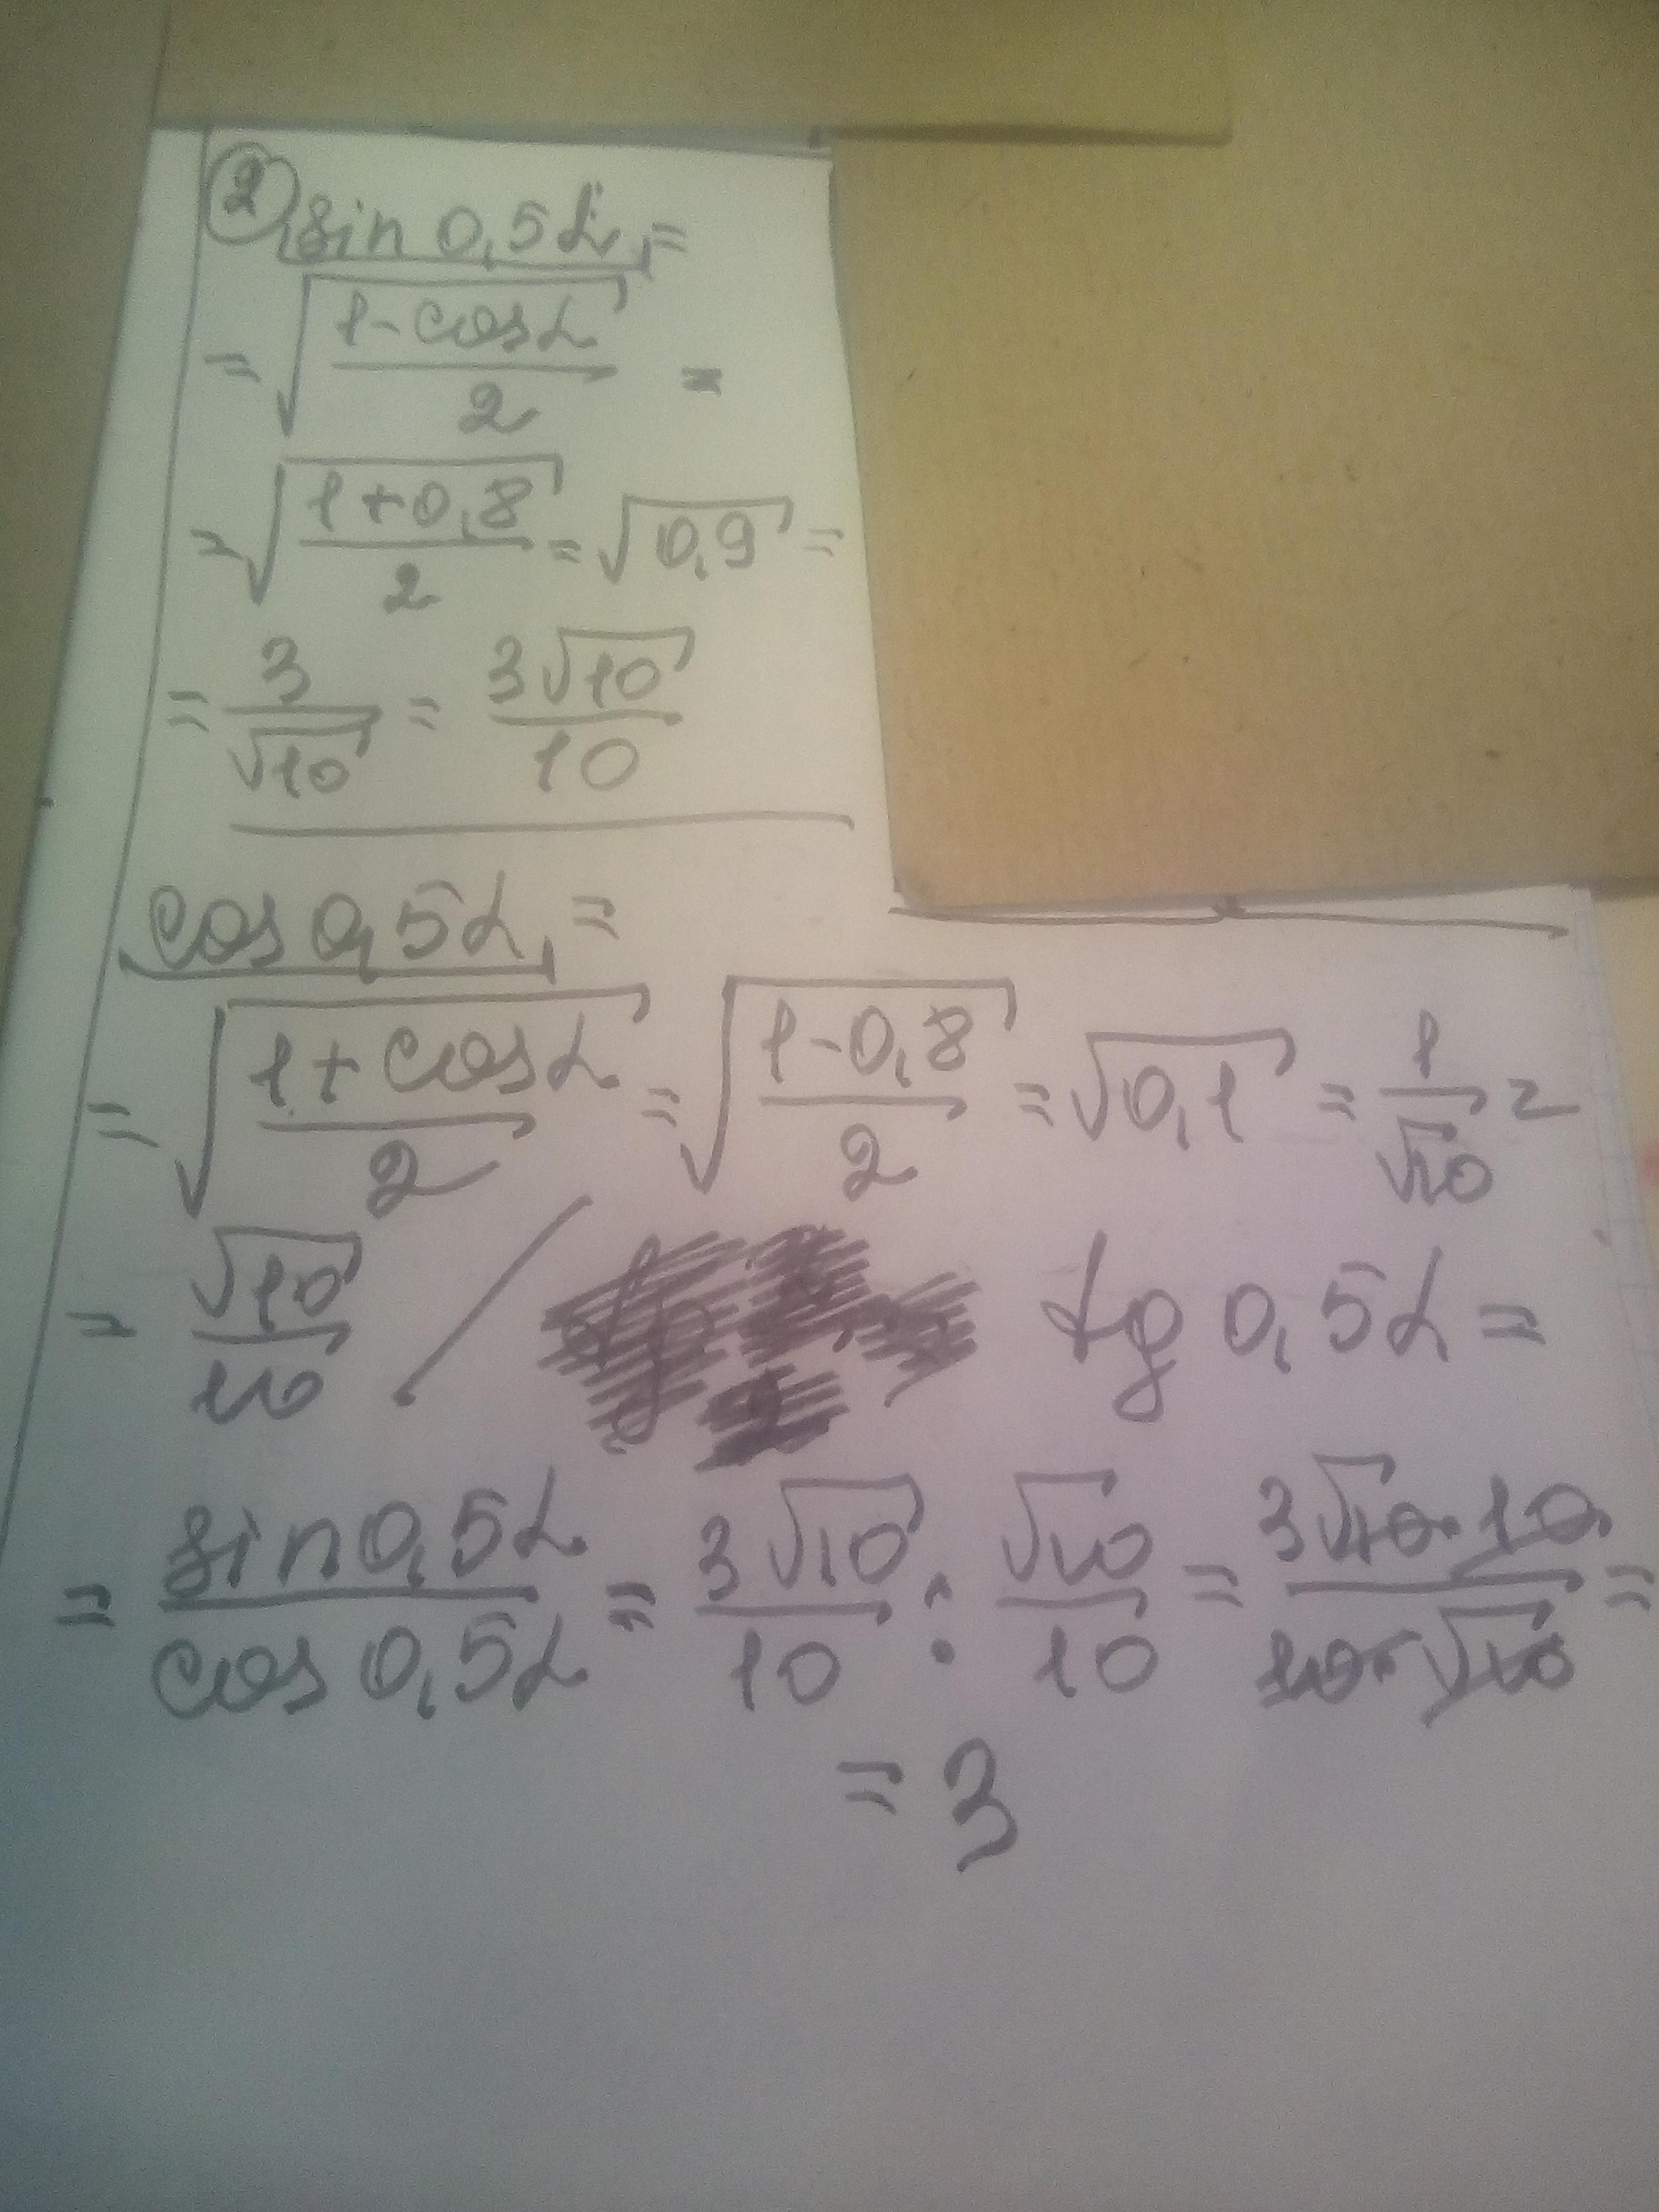 ② sin 0,5α =
= √((1-cosα)/2) =
= √((1+0,8)/2) = √(0,9) =
= 3/√10 = 3√10/10
cos 0,5α =
= √((1+cosα)/2) = √((1-0,8)/2) = √(0,1) = 1/√10 =
= √10/10 / tg 0,5α =
= sin0,5α/cos 0,5α = 3√10/10 : √10/10 = 3√10·10/10·√10 =
= 3